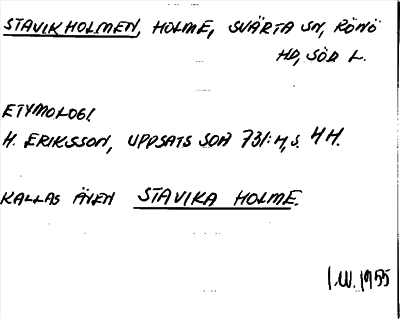 STAVIKHOLMEN, HOLME, SVÄRTA SN, RÖNÖ
HD, SÖD L.
ETYMOLOGI
H. ERIKSSON, UPPSATS SOA 731:4, S. 4 H.
KALLAS ÄVEN STAVIKA HOLME.
I.W. 1955